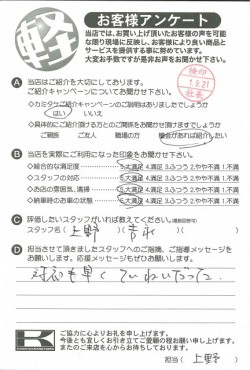 軽
お客様アンケート
当店では、お買い上げ頂いたお客様の声を可能
な限り現場に反映し、お客様により良い商品と
サービスを提供する事に努めています。
大変お手数ですが是非お声をお聞かせ下さい。
検印
1.9.21
社長
A 当店はご紹介を大切にしております。
ご紹介キャンペーンについてお聞かせ下さい。
◇カミタケご紹介キャンペーンのご説明はありましたでしょうか
はい いいえ
◇具体的にご紹介頂ける方とのご関係をお聞かせ頂けますでしょうか
ご親族 ご友人 職場の方 機会があれば紹介したい
B 当店を実際にご利用になった印象をお聞かせ下さい。
◇総合的な満足度 5.大満足 4.満足 3.ふつう 2.やや不満 1.不満
◇スタッフの対応 5.大満足 4.満足 3.ふつう 2.やや不満 1.不満
◇お店の雰囲気、清掃 5.大満足 4.満足 3.ふつう 2.やや不満 1.不満
◇納車時のお車の状態 5.大満足 4.満足 3.ふつう 2.やや不満 1.不満
C 評価したいスタッフがいれば教えてください。(複数回答可)
スタッフ名( 上野 )( 吉永 )
D 担当させて頂きましたスタッフへのご指摘、ご指導メッセージを
お願いします。応援メッセージもぜひお願いします。
対応も早く ていねいだった。
K
ご協力に心よりお礼を申し上げます。
今後とも宜しくお引き立てご愛顧の程お願い申し上げます。
またのご来店を心からお待ちしております。
担当( 上野 )